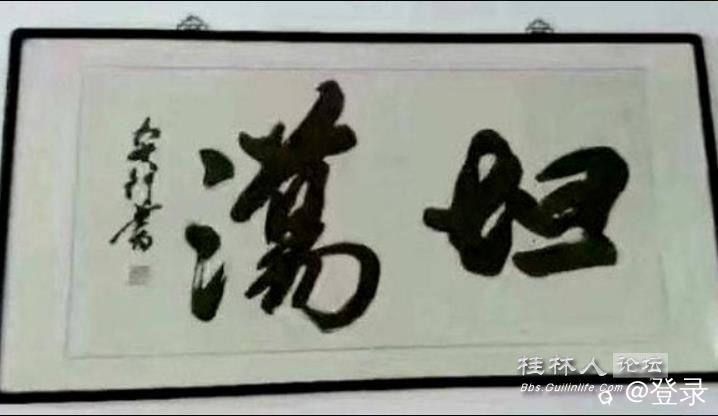 坦荡
书
桂林人 论坛
Bbs.Guilinlife.Com
@登录